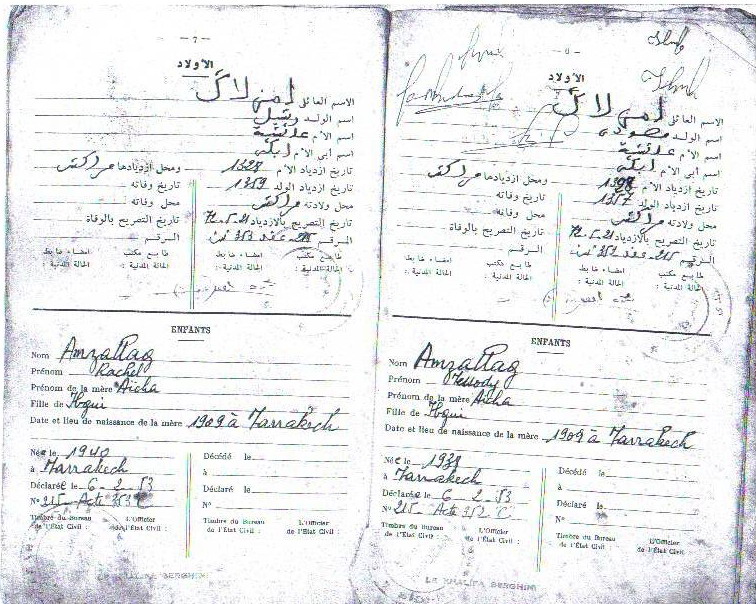 — 7 —
الاولاد
الاسم العائلي امزلاگ
اسم الولد
اسم الأم عائشة
اسم أبى الأم
تاريخ ازدياد الأم 1327 ومحل ازديادها مراكش
تاريخ ازدياد الولد 1359 تاريخ وفاته
محل ولادته مراكش محل وفاته :
تاريخ التصريح بالازدياد تاريخ التصريح بالوفاة
الرقم الرقم
طابع مكتب الحالة المدنية : امضاء ضابط الحالة المدنية :
ENFANTS
Nom Amzallag
Prénom Rachel
Prénom de la mère Aicha
Fille de
Date et lieu de naissance de la mère 1909 à Marrakech
Née le 1940 Décédé le
à Marrakech à
Déclarée le 6-2-53 Déclaré le
N° 215 - Acte 353 C N°
Timbre du Bureau de l'État Civil : L'Officier de l'État Civil :
LE KHALIFA BERGHINI
الاولاد
الاسم العائلي امزلاگ
اسم الولد
اسم الأم عائشة
اسم أبى الأم
تاريخ ازدياد الأم ومحل ازديادها مراكش
تاريخ ازدياد الولد 1357 تاريخ وفاته
محل ولادته مراكش محل وفاته :
تاريخ التصريح بالازدياد تاريخ التصريح بالوفاة
الرقم الرقم
طابع مكتب الحالة المدنية : امضاء ضابط الحالة المدنية :
ENFANTS
Nom Amzallag
Prénom Messody
Prénom de la mère Aicha
Fille de
Date et lieu de naissance de la mère 1909 à Marrakech
Née le Décédé le
à Marrakech à
Déclarée le 6-2-53 Déclaré le
N° 215 - Acte 352 C N°
Timbre du Bureau de l'État Civil : L'Officier de l'État Civil :
LE KHALIFA BERGHINI